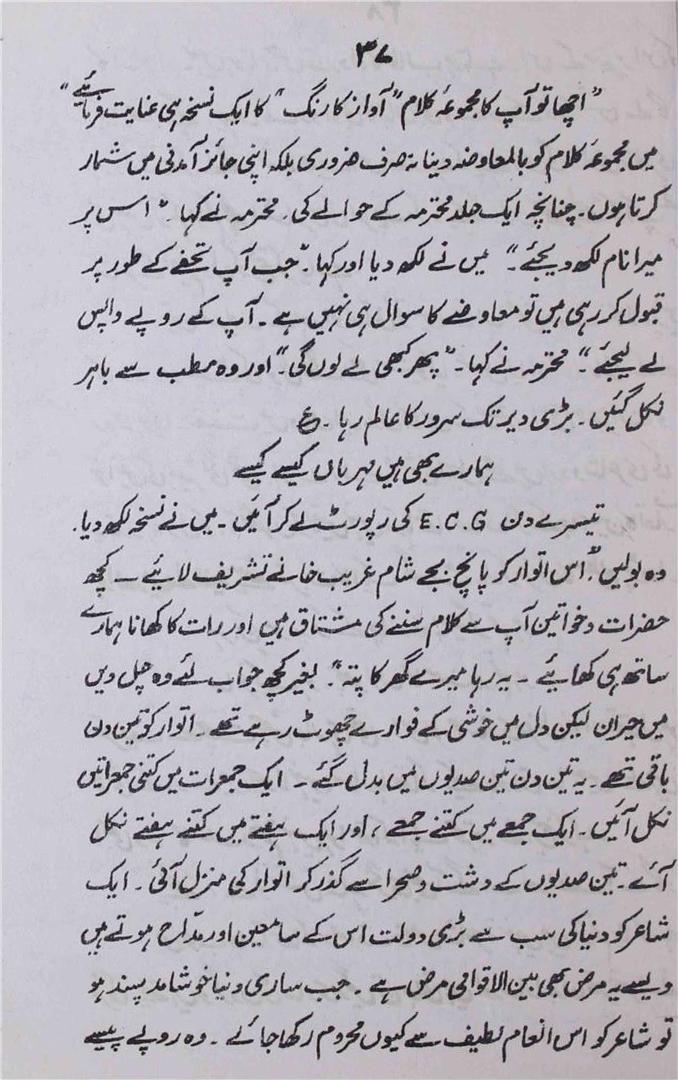 ۳۷
"اچھا تو آپ کا مجموعۂ کلام "آواز کا رنگ" کا ایک نسخہ ہی عنایت فرمائیے"
میں مجموعۂ کلام کو بالمعاوضہ دینا نہ صرف ضروری بلکہ اپنی جائز آمدنی میں شمار
کرتا ہوں۔ چنانچہ ایک جلد محترمہ کے حوالے کی۔ محترمہ نے کہا۔ "اس پر
میرا نام لکھ دیجئے۔" میں نے لکھ دیا اور کہا۔ "جب آپ تحفے کے طور پر
قبول کر رہی ہیں تو معاوضے کا سوال ہی نہیں ہے۔ آپ کے روپے واپس
لے لیجئے۔" محترمہ نے کہا۔ "پھر کبھی لے لوں گی۔" اور وہ مطب سے باہر
نکل گئیں۔ بڑی دیر تک سرور کا عالم رہا۔ ع
ہمارے بھی ہیں مہرباں کیسے کیسے
تیسرے دن E.C.G کی رپورٹ لے کر آئیں۔ میں نے نسخہ لکھ دیا۔
وہ بولیں "اس اتوار کو پانچ بجے شام غریب خانے تشریف لائیے۔ کچھ
حضرات و خواتین آپ سے کلام سننے کی مشتاق ہیں اور رات کا کھانا ہمارے
ساتھ ہی کھائیے۔ یہ رہا میرے گھر کا پتہ"۔ بغیر کچھ جواب لئے وہ چل دیں
میں حیران لیکن دل میں خوشی کے فوارے چھوٹ رہے تھے۔ اتوار کو تین دن
باقی تھے۔ یہ تین دن تین صدیوں میں بدل گئے۔ ایک جمعرات میں کتنی جمعراتیں
نکل آئیں۔ ایک جمعے میں کتنے جمعے، اور ایک ہفتے میں کتنے ہفتے نکل
آئے۔ تین صدیوں کے دشت و صحرا سے گذر کر اتوار کی منزل آئی۔ ایک
شاعر کو دنیا کی سب سے بڑی دولت اس کے سامعین اور مدّاح ہوتے ہیں
ویسے یہ مرض بھی بین الاقوامی مرض ہے۔ جب ساری دنیا خوشامد پسند ہو
تو شاعر کو اس انعام لطیف سے کیوں محروم رکھا جائے۔ وہ روپے پیسے